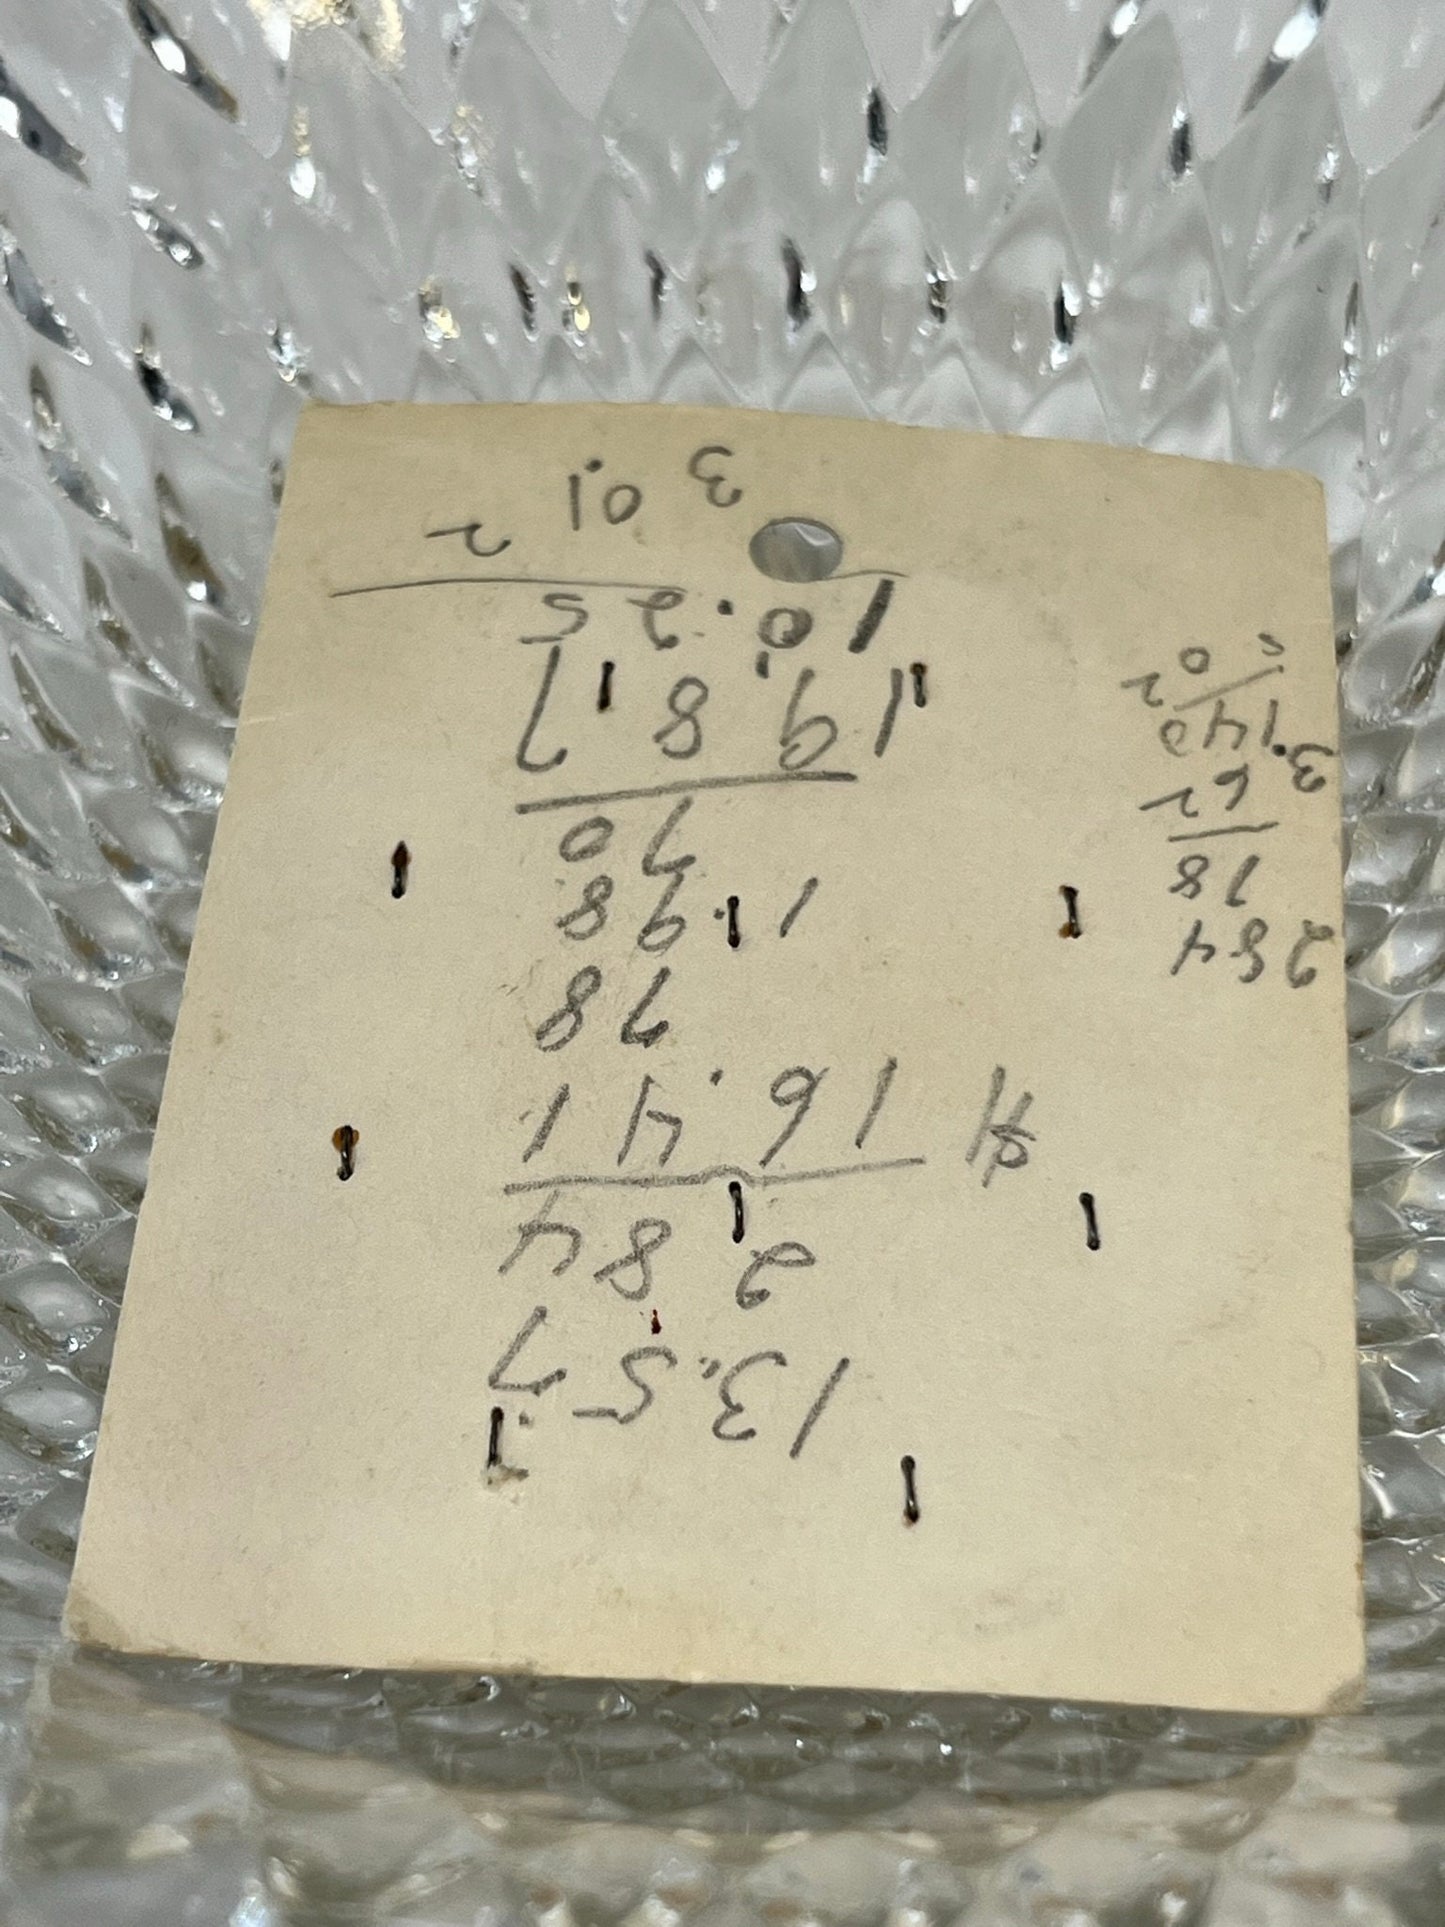 13.57
284
16.41
78
1.98
70
19.87
10.25
30.12
284
18
1.40